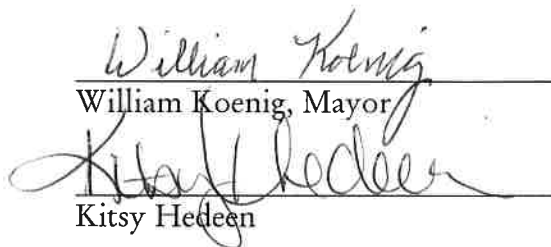 William Koenig
William Koenig, Mayor
Kitsy Hedeen
Kitsy Hedeen